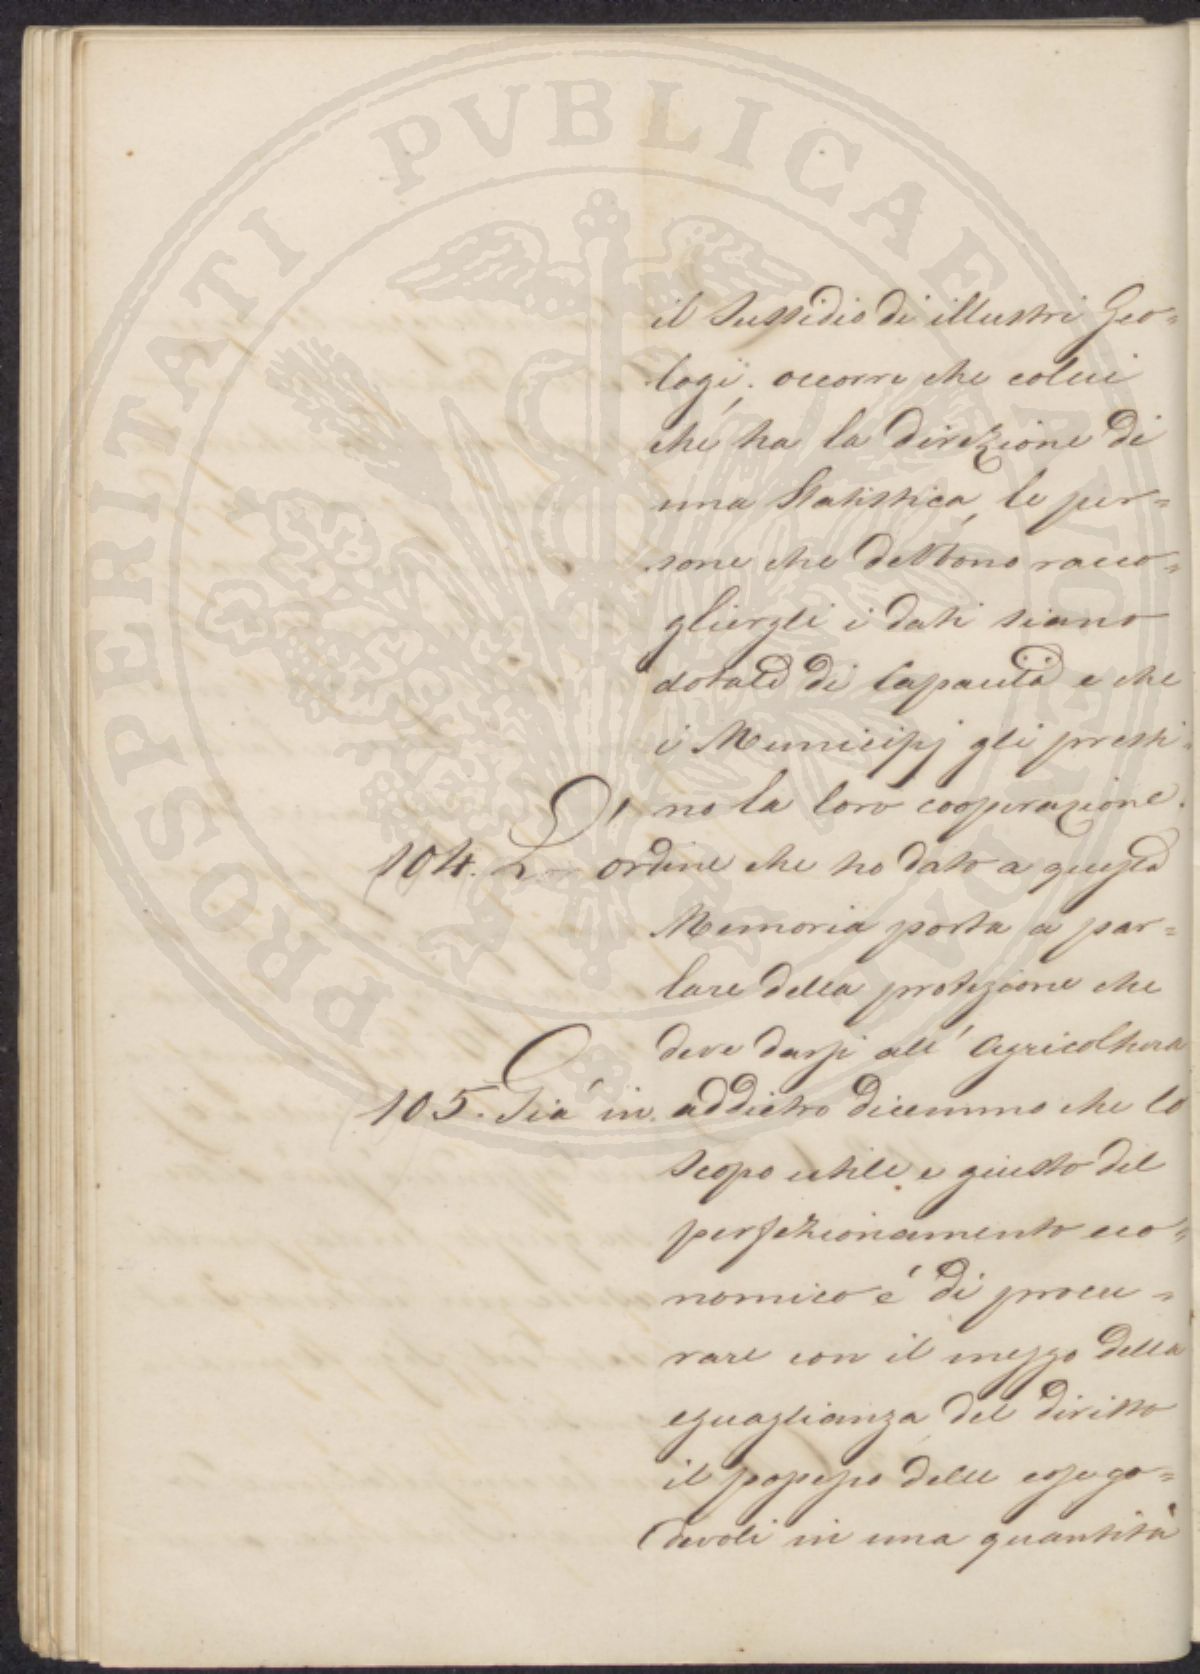 PROSPERITATI PVBLICAE AVGENDAE
il Sussidio di illustri Geo=
logi; occorre che colui
che ha la direzione di
una Statistica, le per=
sone che debbono racco=
gliergli i dati siano
dotate di capacità e che
i Municipj gli presti=
no la loro cooperazione.
104. L' ordine che ho dato a questa
Memoria porta a par=
lare della protezione che
deve darsi all' Agricoltura
105. Già in addietro dicemmo che lo
scopo utile e giusto del
perfezionamento eco=
nomico é di procu=
rare con il mezzo della
eguaglianza del diritto
il possesso delle cose go=
devoli in una quantità